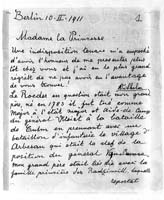 Berlin 10-II-1911
1
Madame la Princesse
Une indisposition tenace m'a empêché
d'avoir l'honneur de me présenter plus
tôt chez vous et j'ai eu le plus grand
regret de ne pas avoir eu l'avantage
de vous
Le Roeder en question était mon grand
père, né en 1783 il fut
Major à l'état major et Aide de Camp
du général Kleist à la bataille
de Culm en prenant avec un
bataillon d'infanterie le village d'
Arbesau qui était la clef de la
position du général
grand père était lié avec la
famille princière des Radziwill, laquelle